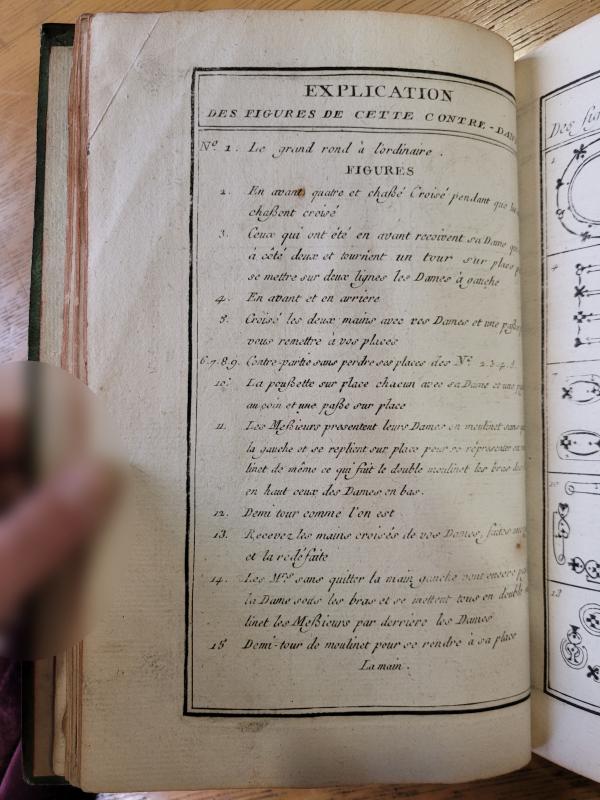 EXPLICATION
DES FIGURES DE CETTE CONTRE-DAN
Nº 1. Le grand rond à l'ordinaire.
FIGURES
2. En avant quatre et chaßé Croisé pendant que
chaßent croisé
3. Ceux qui ont été en avant reçoivent sa Dame
à côté deux et tournent un tour sur place
se mettre sur deux lignes les Dames à gauche
4. En avant et en arriere
5. Croisé les deux mains avec vos Dames et une paße
vous remettre à vos places
6.7.8.9. Contre-partie sans perdre ses places des Nº 2.3.4.5.
10. La poußette sur place chacun avec sa Dame et une
au coin et une paße sur place
11. Les Meßieurs presentent leurs Dames en moulinet sans
la gauche et se replient sur place pour se répresenter en
linet de même ce qui fait le double moulinet les bras
en haut ceux des Dames en bas.
12. Demi tour comme l'on est
13. Recevez les mains croisés de vos Dames, faites
et la redéfaite
14. Les Mrs sans quitter la main gauche vont encore
la Dame sous les bras et se mettent tous en double
linet les Meßieurs par derriere les Dames
15 Demi-tour de moulinet pour se rendre à sa place
La main.
Des fig
1
4
10
13